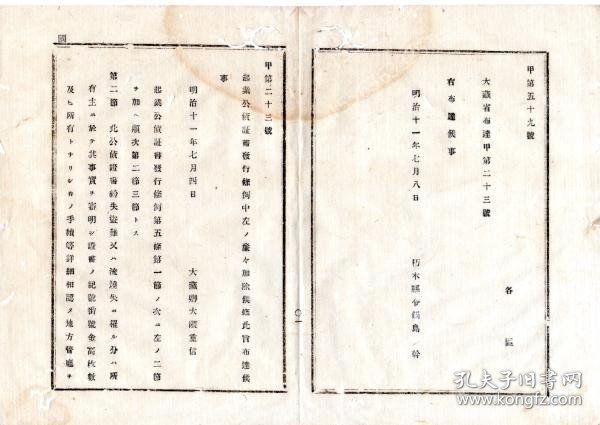 甲第五十九號
各區
大藏省布達甲第二十三號
右布達候事
明治十一年七月八日
栃木縣令鍋島 幹
甲第二十三號
起業公債証書發行條例中左ノ廉々加除候條此旨布達候
事
明治十一年七月四日
大藏卿大隈重信
起業公債証書發行條例第五條第一節ノ次ニ左ノ二節
ヲ加ヘ順次第二節三節トス
第二節 此公債證書紛失盗難又ハ流燒失ニ罹ル分ハ所
有主ニ於テ其事實ヲ審明シ證書ノ記號番號金高枚數
及ヒ所有トナリシ
ノ手續等詳細相認メ地方管廳ヲ
國
孔夫子旧书网
www.kongfz.com